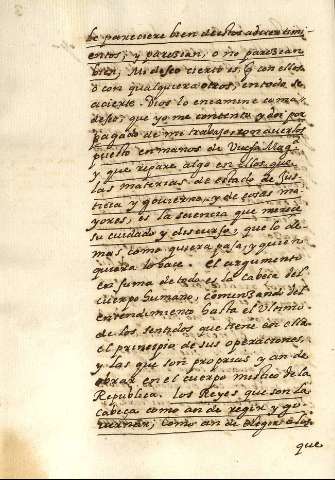 le pareciere bien de estos advertimi-
entos; y parezcan, o no parezcan
bien, Mi deseo cierto es, q con ellos
o con qualquiera otros, en todo se
acierte. Dios lo encamine como
deseo, que yo me contento, y doi por
pagado de mi trabajo con averlos
puesto en manos de Vuesa Magd
y que repare algo en ellos, que
las materias de estado de Jus-
ticia y govierno, y de cosas ma-
yores, es la sciencia que merece
su cuidado y discurso; que lo de-
mas como quiera pasa, y quien
quiera lo hace. El argumento
en suma de todo es la Cabeça del
Cuerpo humano, Comenzando del
entendimiento hasta el Ultimo
de los sentidos que tiene en ella
el principio de sus operaciones,
y las que son proprias y an de
obrar en el cuerpo mistico de la
Republica. Los Reyes que son la
Cabeça como an de regir y go-
vernar; como an de elegir a los
que